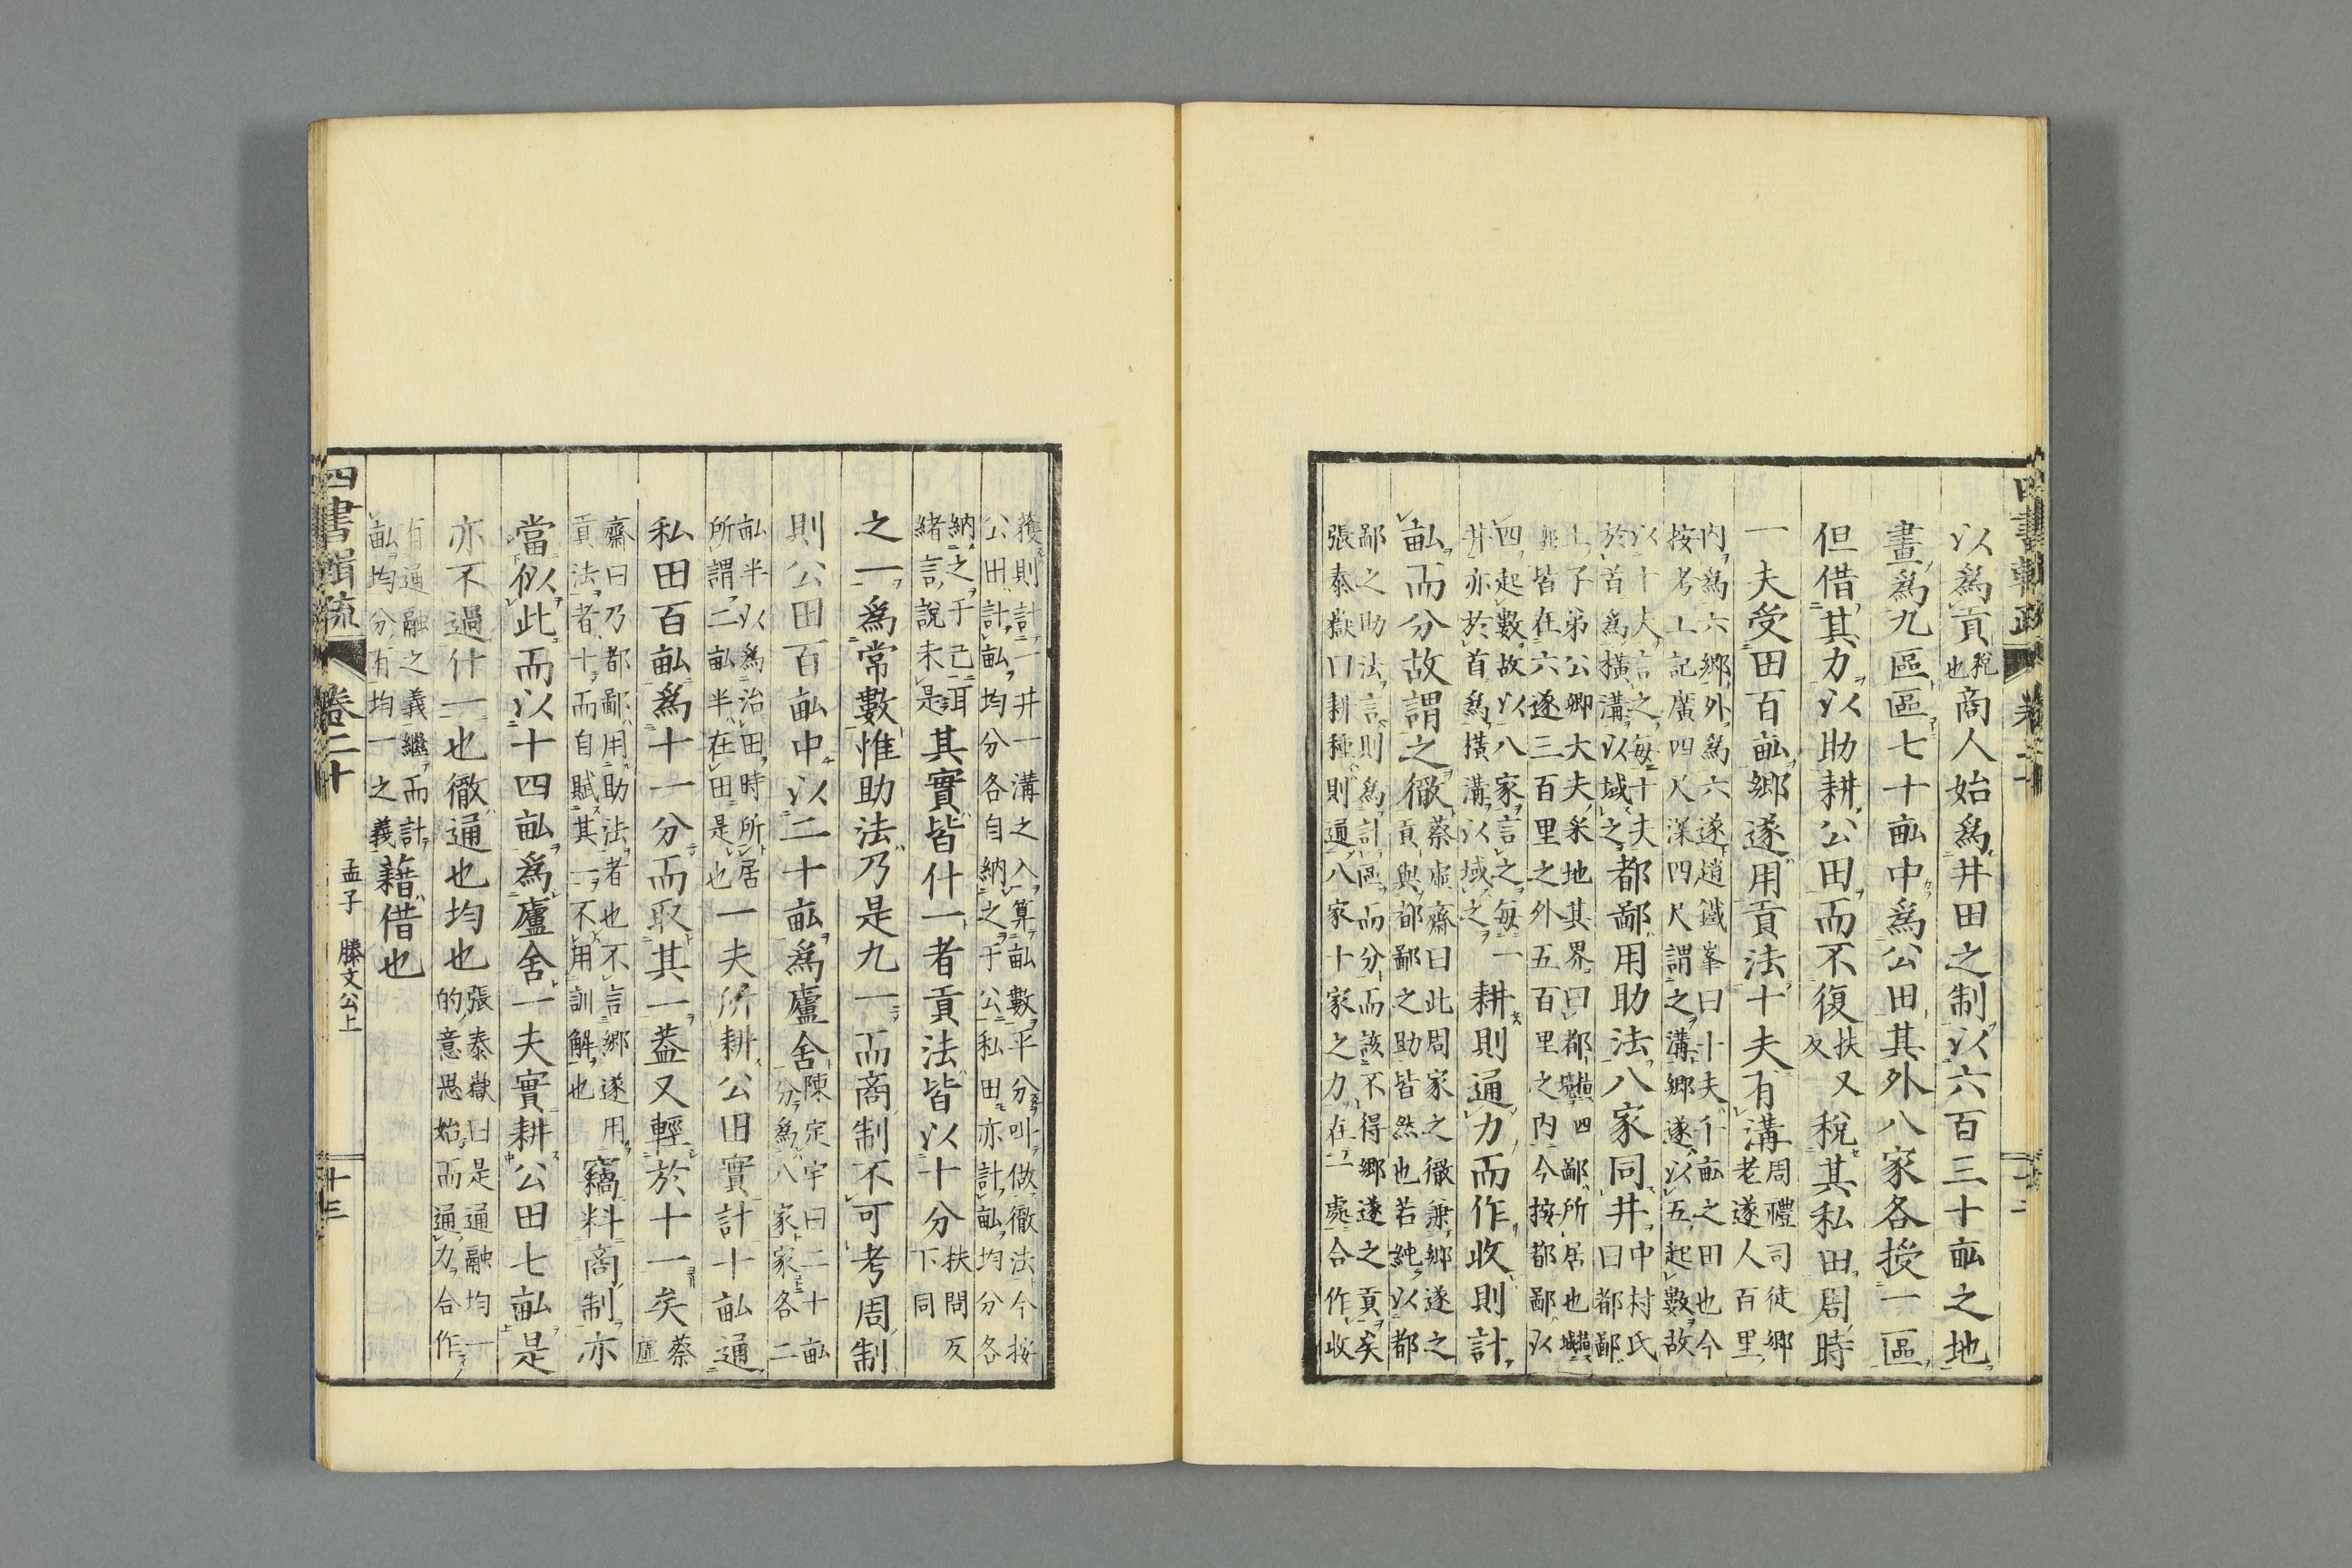 以爲貢税也商人始爲井田之制以六百三十畝之地
畫爲九區區七十畝中爲公田其外八家各授一區
但借其力以助耕公田而不復扶又反税其私田周時
一夫受田百畝鄉遂用貢法十夫有溝周禮司徒鄉老遂人百里
内爲六鄉外爲六遂趙鐵峯曰十夫千畝之田也今
按考工記廣四尺深四尺謂之溝鄉遂以五起數故
以十夫言之每十夫
於首爲橫溝以域之都鄙用助法八家同井中村氏曰都鄙
子弟公卿大夫采地其界曰都四鄙所居也
皆在六遂三百里之外五百里之内今按都鄙以
四起數故以八家言之每一
井亦於首爲橫溝以域之耕則通力而作收則計
畝而分故謂之徹蔡虛齋曰此周家之徹兼鄉遂之貢與都鄙之助皆然也若純以都
鄙之助法言則爲計區而分而該不得鄉遂之貢矣
張泰嶽曰耕種則通八家十家之力在一處合作收
四書輯疏 卷二十
穫則計一井一溝之入算畝數平分叫做徹法今按
公田計畝均分各自納之于公私田亦計畝均分各
納之于己
緒言説未是其實皆什一者貢法皆以十分扶問反下同
之一爲常數惟助法乃是九一而商制不可考周制
則公田百畝中以二十畝爲廬舍陳定宇曰二十畝分爲八家家各二
畝半以爲治田時所居
所謂二畝半在田是也一夫所耕公田實計十畝通
私田百畝爲十一分而取其一蓋又輕於十一矣蔡虛
齋曰乃都鄙用助法者也不言鄉遂用
貢法者十而自賦其一不用訓解也竊料商制亦
當似此而以十四畝爲廬舍一夫實耕公田七畝是
亦不過什一也徹通也均也張泰嶽曰是通融均一的意思始而通力合作
有通融之義繼而計
畝均分有均一之義藉借也
四書輯疏 卷二十 孟子 滕文公上 十三